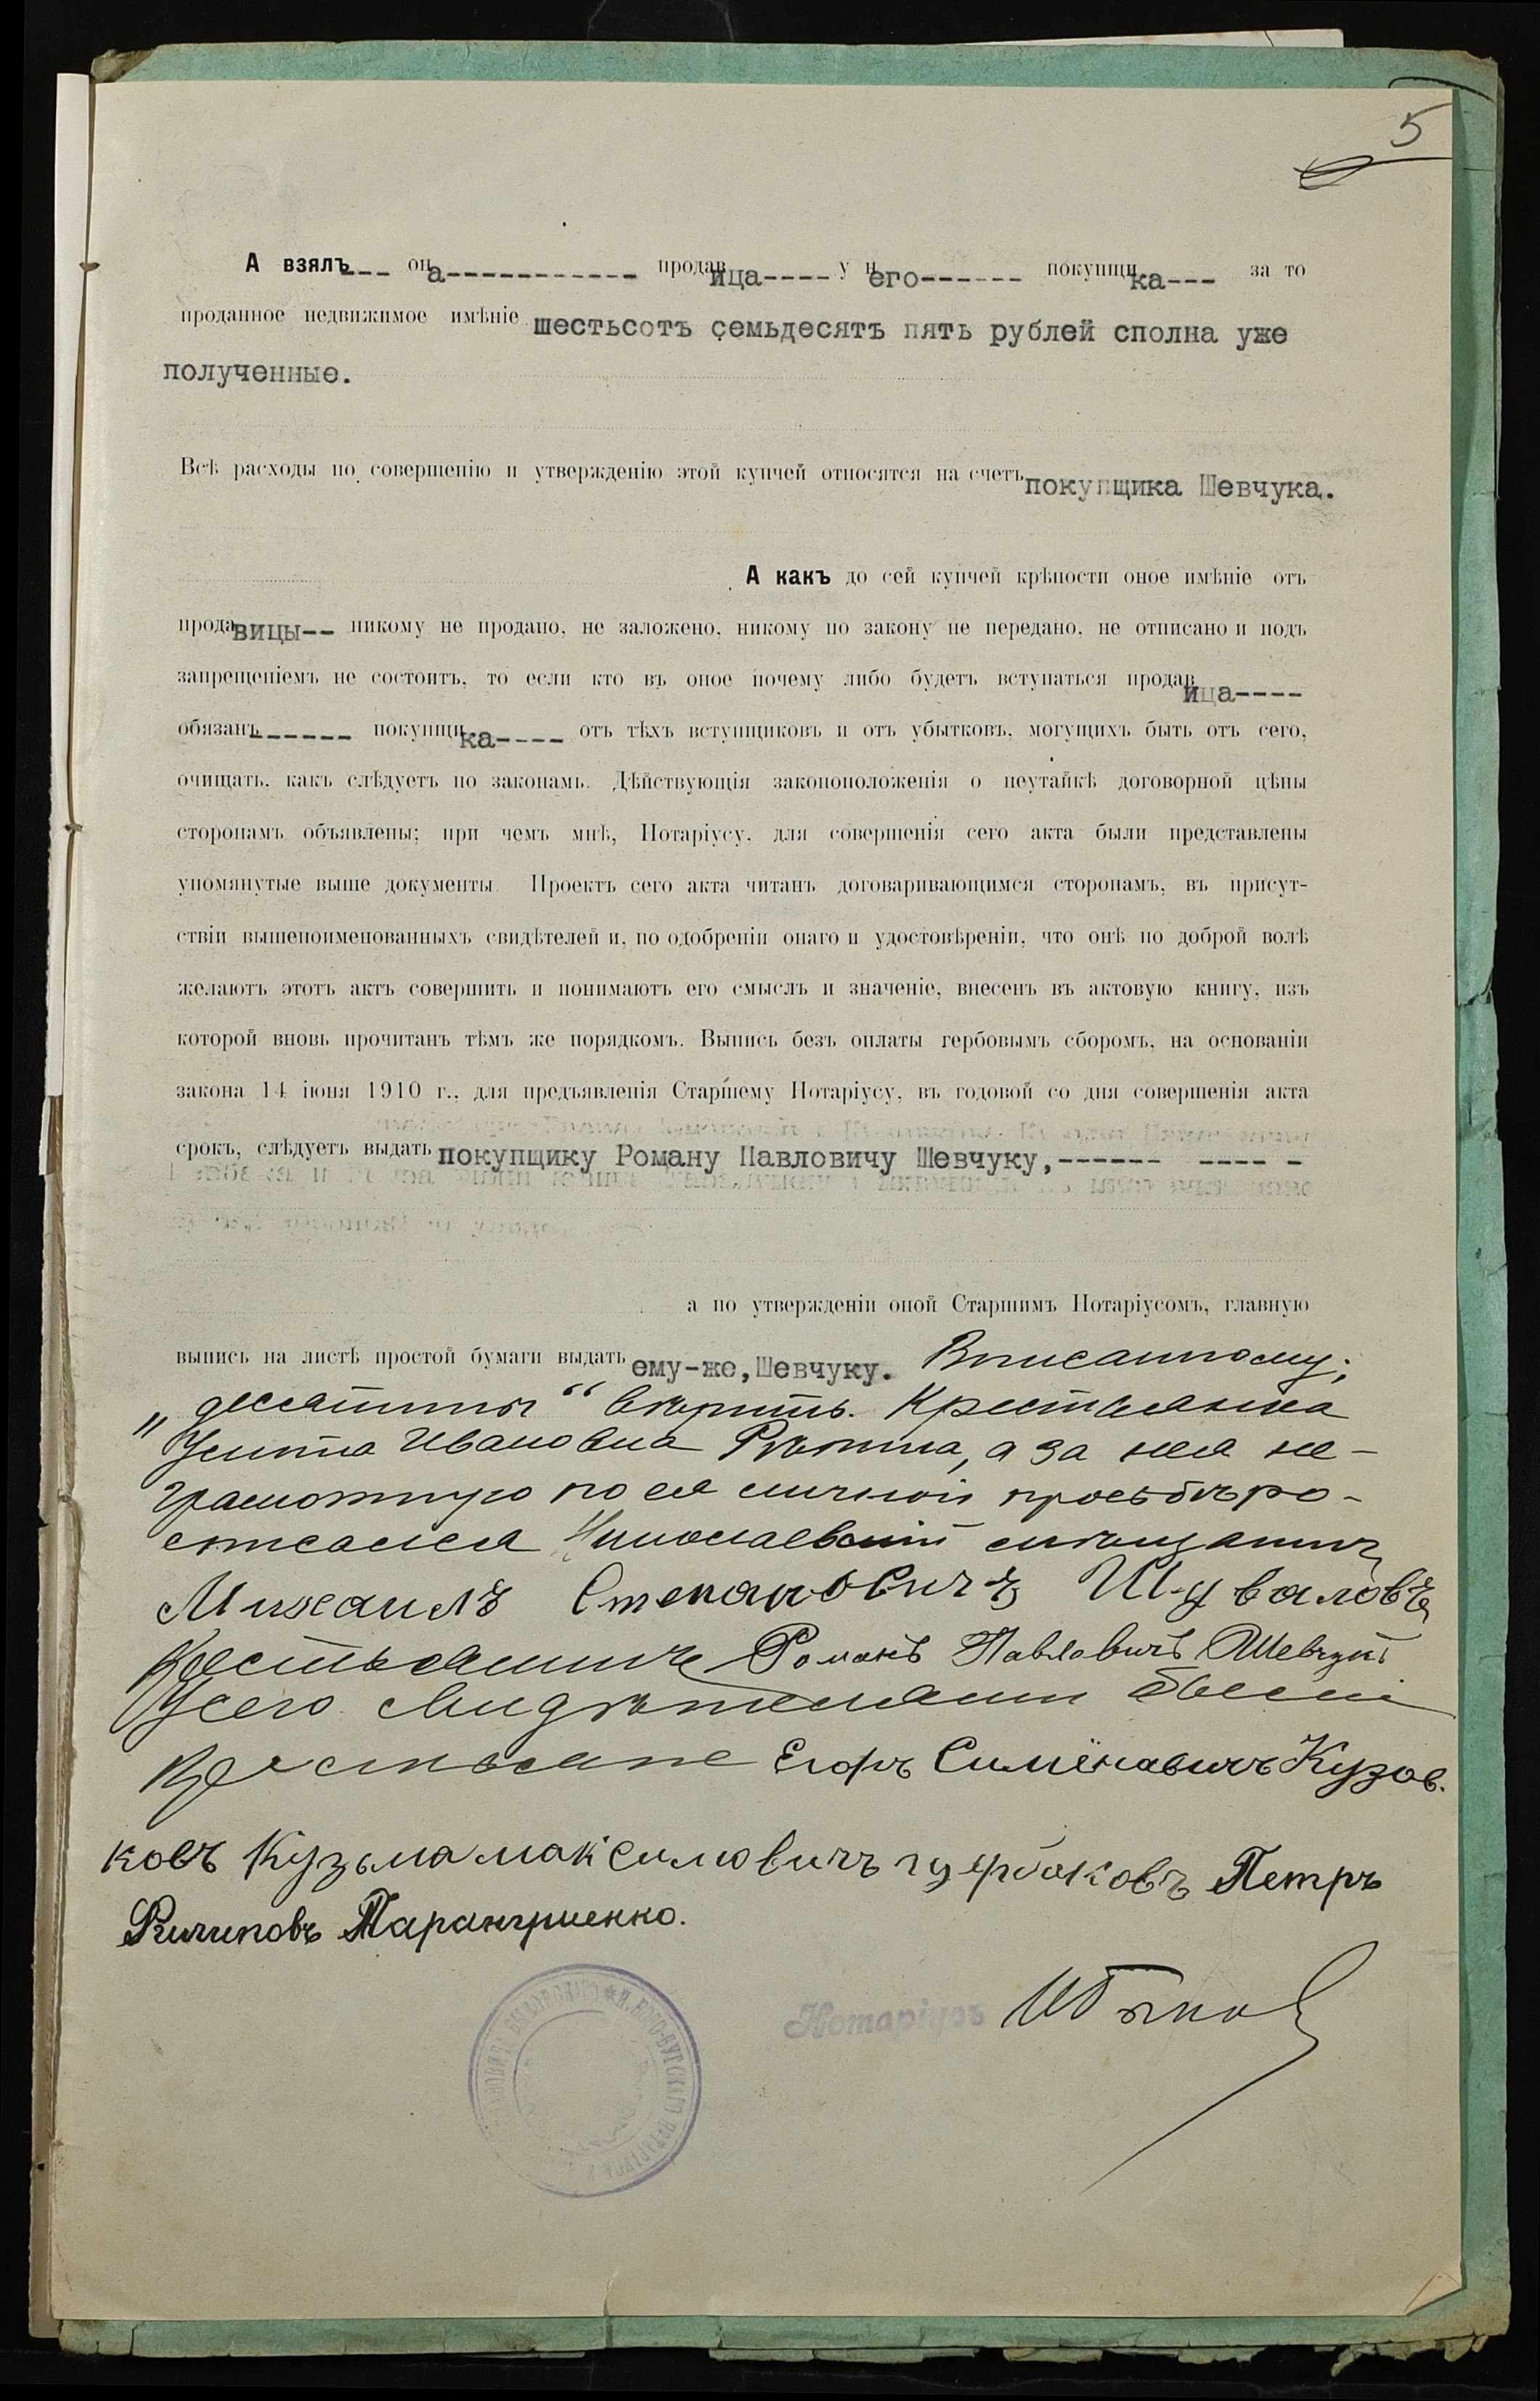 5
А взялъ--- она------------ продавица---- у него------ покупщика--- за то
проданное недвижимое имѣніе шестьсотъ семьдесятъ пять рублей сполна уже
полученные.
Всѣ расходы по совершенію и утвержденію этой купчей относятся на счетъ покупщика Шевчука.
А какъ до сей купчей крѣпости оное имѣніе отъ
продавицы-- никому не продано, не заложено, никому по закону не передано, не отписано и подъ
запрещеніемъ не состоитъ, то если кто въ оное почему либо будетъ вступаться продавица----
обязанъ------ покупщика---- отъ тѣхъ вступщиковъ и отъ убытковъ, могущихъ быть отъ сего,
очищать, какъ слѣдуетъ по законамъ. Дѣйствующія законоположенія о неутайкѣ договорной цѣны
сторонамъ объявлены; при чемъ мнѣ, Нотаріусу, для совершенія сего акта были представлены
упомянутые выше документы. Проектъ сего акта читанъ договаривающимся сторонамъ, въ присут-
ствіи вышепоименованныхъ свидѣтелей и, по одобреніи онаго и удостовѣреніи, что онѣ по доброй волѣ
желаютъ этотъ актъ совершить и понимаютъ его смыслъ и значеніе, внесенъ въ актовую книгу, изъ
которой вновь прочитанъ тѣмъ же порядкомъ. Выпись безъ оплаты гербовымъ сборомъ, на основаніи
закона 14 іюня 1910 г., для предъявленія Старшему Нотаріусу, въ годовой со дня совершенія акта
срокъ, слѣдуетъ выдать покупщику Роману Павловичу Шевчуку,------ ---- -
а по утвержденіи оной Старшимъ Нотаріусомъ, главную
выпись на листѣ простой бумаги выдать ему-же, Шевчуку. Вписанному:
„десятины“ вѣрить. Крестьянка
Ивановна а за нея не-
грамотную по ея личной просьбѣ ро-
списался Николаевскій мѣщанинъ
Михаилъ Степановичъ Шуваловъ
Крестьянинъ Романъ Павловичъ Шевчукъ
У сего свидѣтелями были
Крестьяне Егоръ Симёнавичъ Кузов.
ковъ Кузьма максимовичъ щербаковъ Петръ
Филиповъ
Нотаріусъ